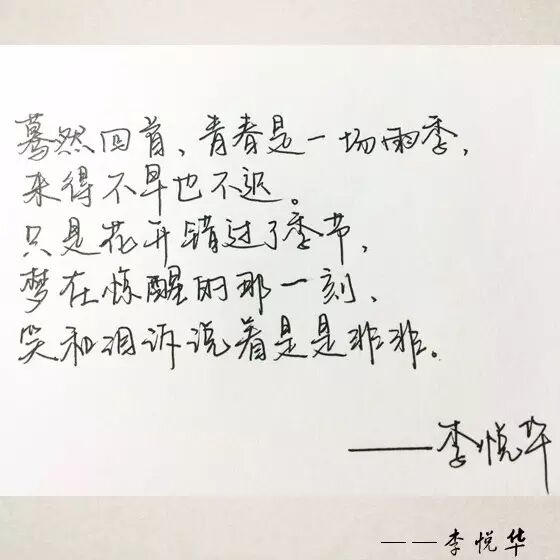 蓦然回首、青春是一场雨季，
来得不早也不迟。
只是花开错过了季节，
梦在惊醒的那一刻、
哭和泪诉说着是是非非。
——李悦华
——李悦华